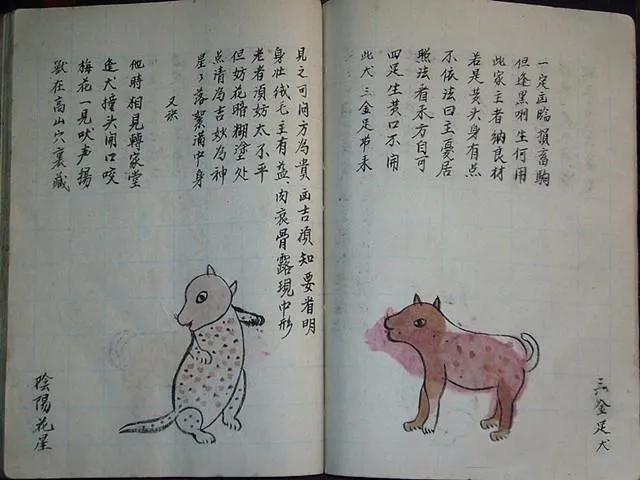 一定凶臨損畜駒
但逢黑咧生何用
此家主者納良材
若是黄头身有点
不依法曰主憂居
照法看禾方自可
四足生黄口不闹
此犬三金足带禾
三金足犬
見之可问方為貴 凶吉湏知要省明
身壮绒毛主有益、肉衰骨露現中形
老者湏妨太不平
但妨花暗糊塗处
点清為吉妙為神
星々落絮满中身
又诀
他時相見轉家堂
逢犬撞头闹口咬
梅花一見吠声揚
獣在高山穴裏藏
陰陽花星